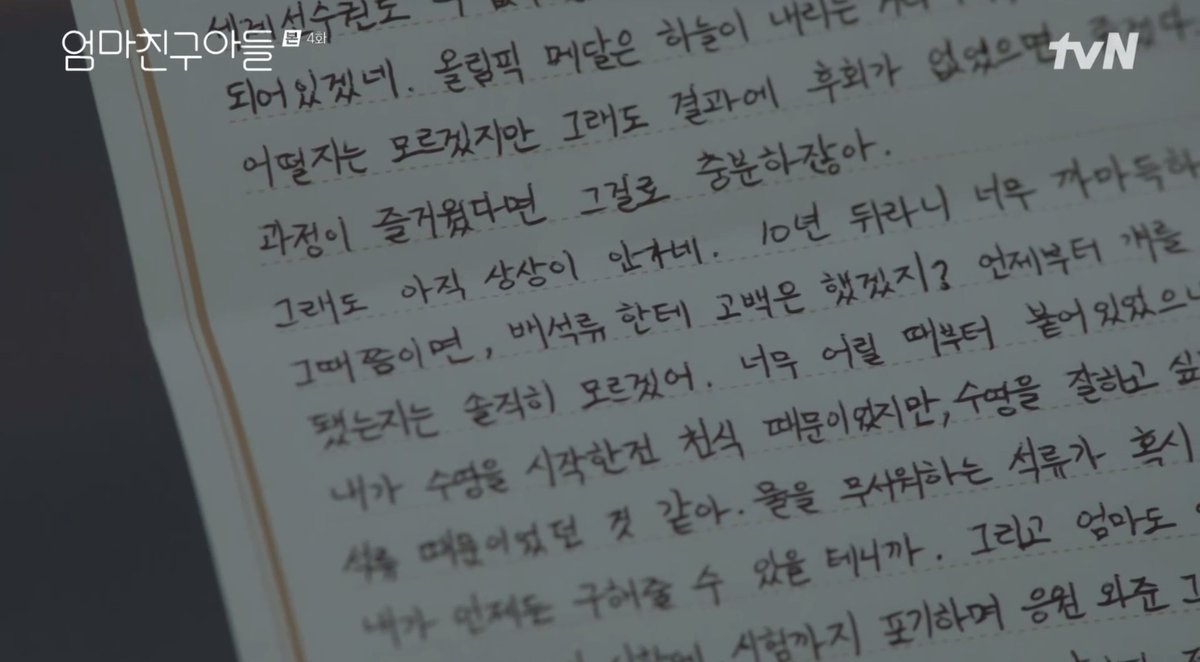 엄마친구아들 본 4화
tvN
세계선수권도
되어있겠네. 올림픽 메달은 하늘이 내리는
어떨지는 모르겠지만 그래도 결과에 후회가 없었으면 즐겁다
과정이 즐거웠다면 그걸로 충분하잖아.
그래도 아직 상상이 안가네. 10년 뒤라니 너무 까마득하
그때쯤이면, 배석류한테 고백은 했겠지? 언제부터 걔를
됐는지는 솔직히 모르겠어. 너무 어릴 때부터 붙어있었으니
내가 수영을 시작한건 천식 때문이었지만, 수영을 잘하고 싶
석류 때문이었던 것 같아. 물을 무서워하는 석류가 혹시
내가 언제든 구해줄 수 있을 테니까. 그리고 엄마도
시험까지 포기하며 응원 와준 그